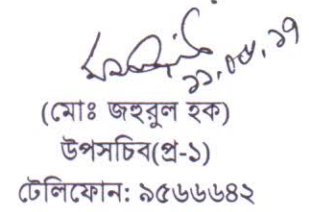 (মোঃ জহুরুল হক)
উপসচিব(প্র-১)
টেলিফোন: ৯৫৬৬৬৪২